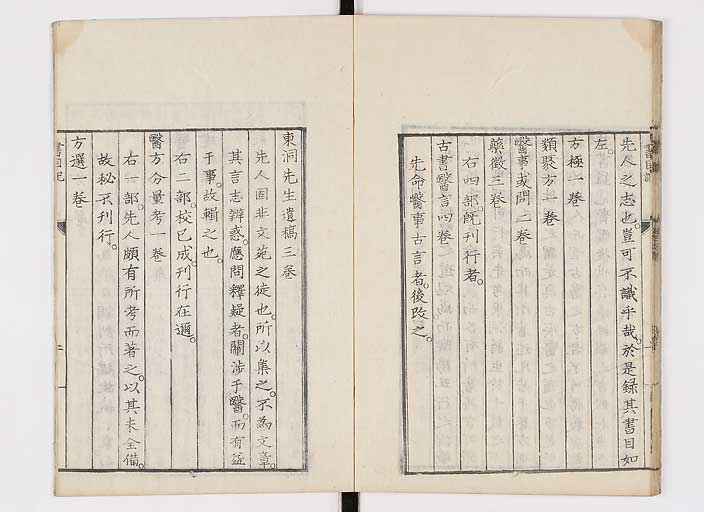 先人之志也。豈可不識乎哉。於是録其書目如
左。
方極一卷
類聚方一卷
醫事或問二卷
藥徵三卷
右四部。既刊行者。
古書醫言四卷
先命醫事古言者。後改之。
東洞先生遺稿三卷
先人固非文苑之徒也。所以集之。不為文章。
其言志辨惑。應問釋疑者。關涉于醫。而有益
于事。故輯之也。
右二部。校已成刊行在邇。
醫方分量考一卷
右一部。先人頗有所考而著之。以其未全備。
故秘不刊行。
方選一卷
書目記
二